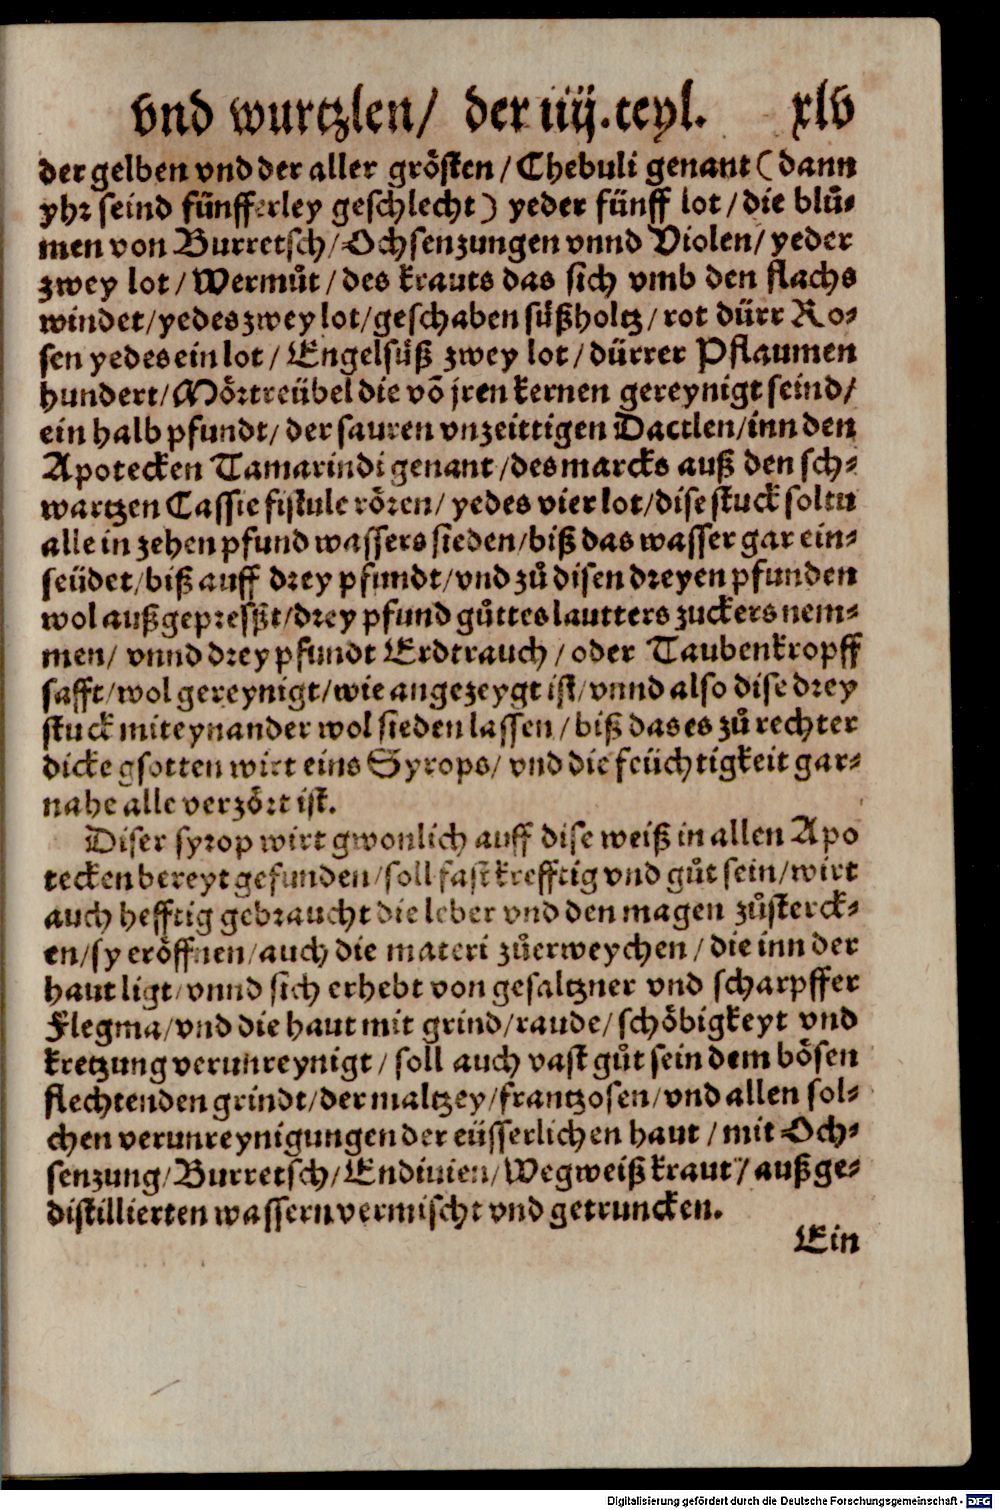 vnd wurtzlen/ der iiij.teyl. xlv
der gelben vnd der aller grösten/Chebuli genant (dann
yhr seind fünfferley geschlecht) yeder fünff lot/die blů-
men von Burretsch/Ochsenzungen vnnd Violen/yeder
zwey lot/Wermůt/des krauts das sich vmb den flachs
windet/yedes zwey lot/geschaben süßholtz/rot dürr Ro-
sen yedes ein lot/Engelsüß zwey lot/dürrer Pflaumen
hundert/Mörtreübel die võ jren kernen gereynigt seind/
ein halb pfundt/der sauren vnzeittigen Dactlen/inn den
Apotecken Tamarindi genant/des marcks auß den sch-
wartzen Cassie fistule rören/yedes vier lot/dise stuck solln
alle in zehen pfund wassers sieden/biß das wasser gar ein-
seüdet/biß auff drey pfundt/vnd zů disen dreyen pfunden
wol außgepresßt/drey pfund gůttes lautters zuckers nem-
men/ vnnd drey pfundt Erdtrauch/oder Taubenkropff
safft/wol gereynigt/wie angezeygt ist/vnnd also dise drey
stuck miteynander wol sieden lassen/biß das es zů rechter
dicke gsotten wirt eins Syrops/ vnd die feüchtigkeit gar-
nahe alle verzört ist.
Diser syrop wirt gwonlich auff dise weiß in allen Apo
tecken bereyt gefunden/soll fast krefftig vnd gůt sein/wirt
auch hefftig gebraucht die leber vnd den magen zůsterck-
en/sy eröffnen/auch die materi zůerweychen/die inn der
haut ligt/vnnd sich erhebt von gesaltzner vnd scharpffer
Flegma/vnd die haut mit grind/raude/schöbigkeyt vnd
kretzung verunreynigt/soll auch vast gůt sein dem bösen
flechtenden grindt/der maltzey/frantzosen/vnd allen sol-
chen verunreynigungen der eüsserlichen haut/mit Och-
senzung/Burretsch/Endiuien/Wegweiß kraut/außge-
distillierten wassern vermischt vnd getruncken.
Ein
Digitalisierung gefördert durch die Deutsche Forschungsgemeinschaft - DFG